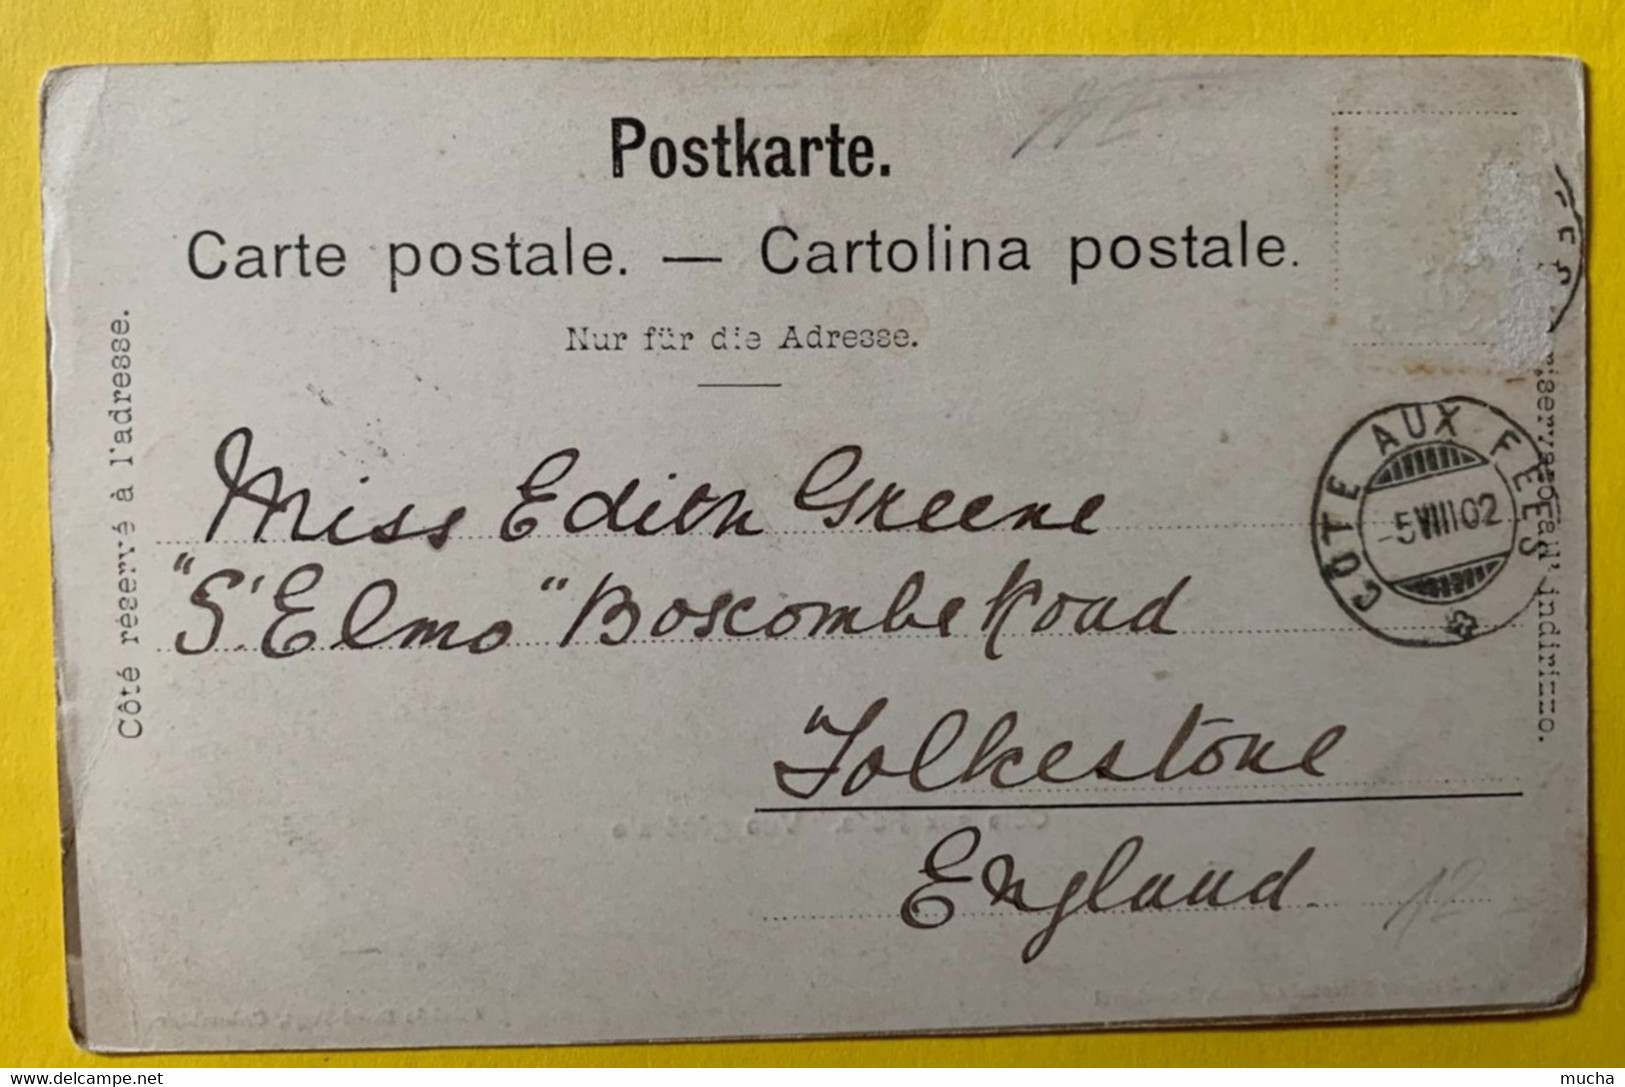 Postkarte.
Carte postale. — Cartolina postale.
Nur für die Adresse.
Côté réservé à l'adresse.
COTE AUX FEES
-5 VIII 02
Miss Edith Greene
"St Elmo" Boscombe Road
Folkestone
England
12
all'indirizzo.
delcampe.net
mucha